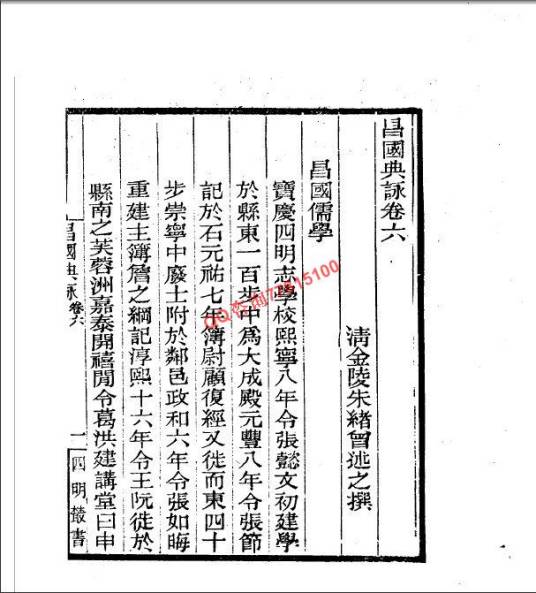 昌國典詠卷六
清金陵朱緒曾述之撰
昌國儒學
寶慶四明志學校熙寧八年令張懿文初建學
於縣東一百步中爲大成殿元豐八年令張節
記於石元祐七年簿尉顧復經又徙而東四十
步崇寧中廢士附於鄰邑政和六年令張如晦
重建主簿詹之綱記淳熙十六年令王阮徙於
縣南之芙蓉洲嘉泰開禧閒令葛洪建講堂曰申
昌國典詠卷六
一
四明叢書